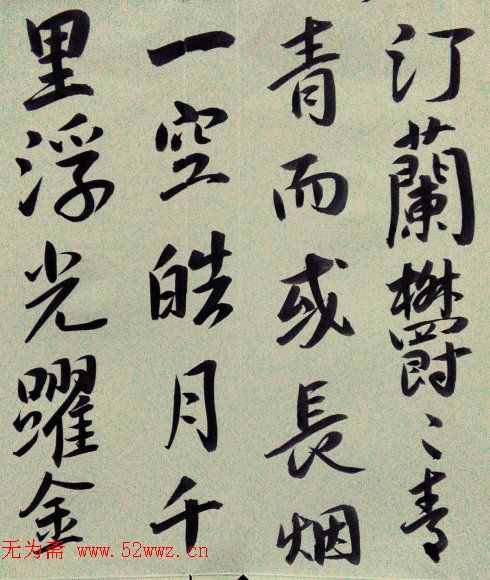 汀蘭欝〻青
青而或長烟
一空皓月千
里浮光躍金
无为斋 www.52wwz.cn